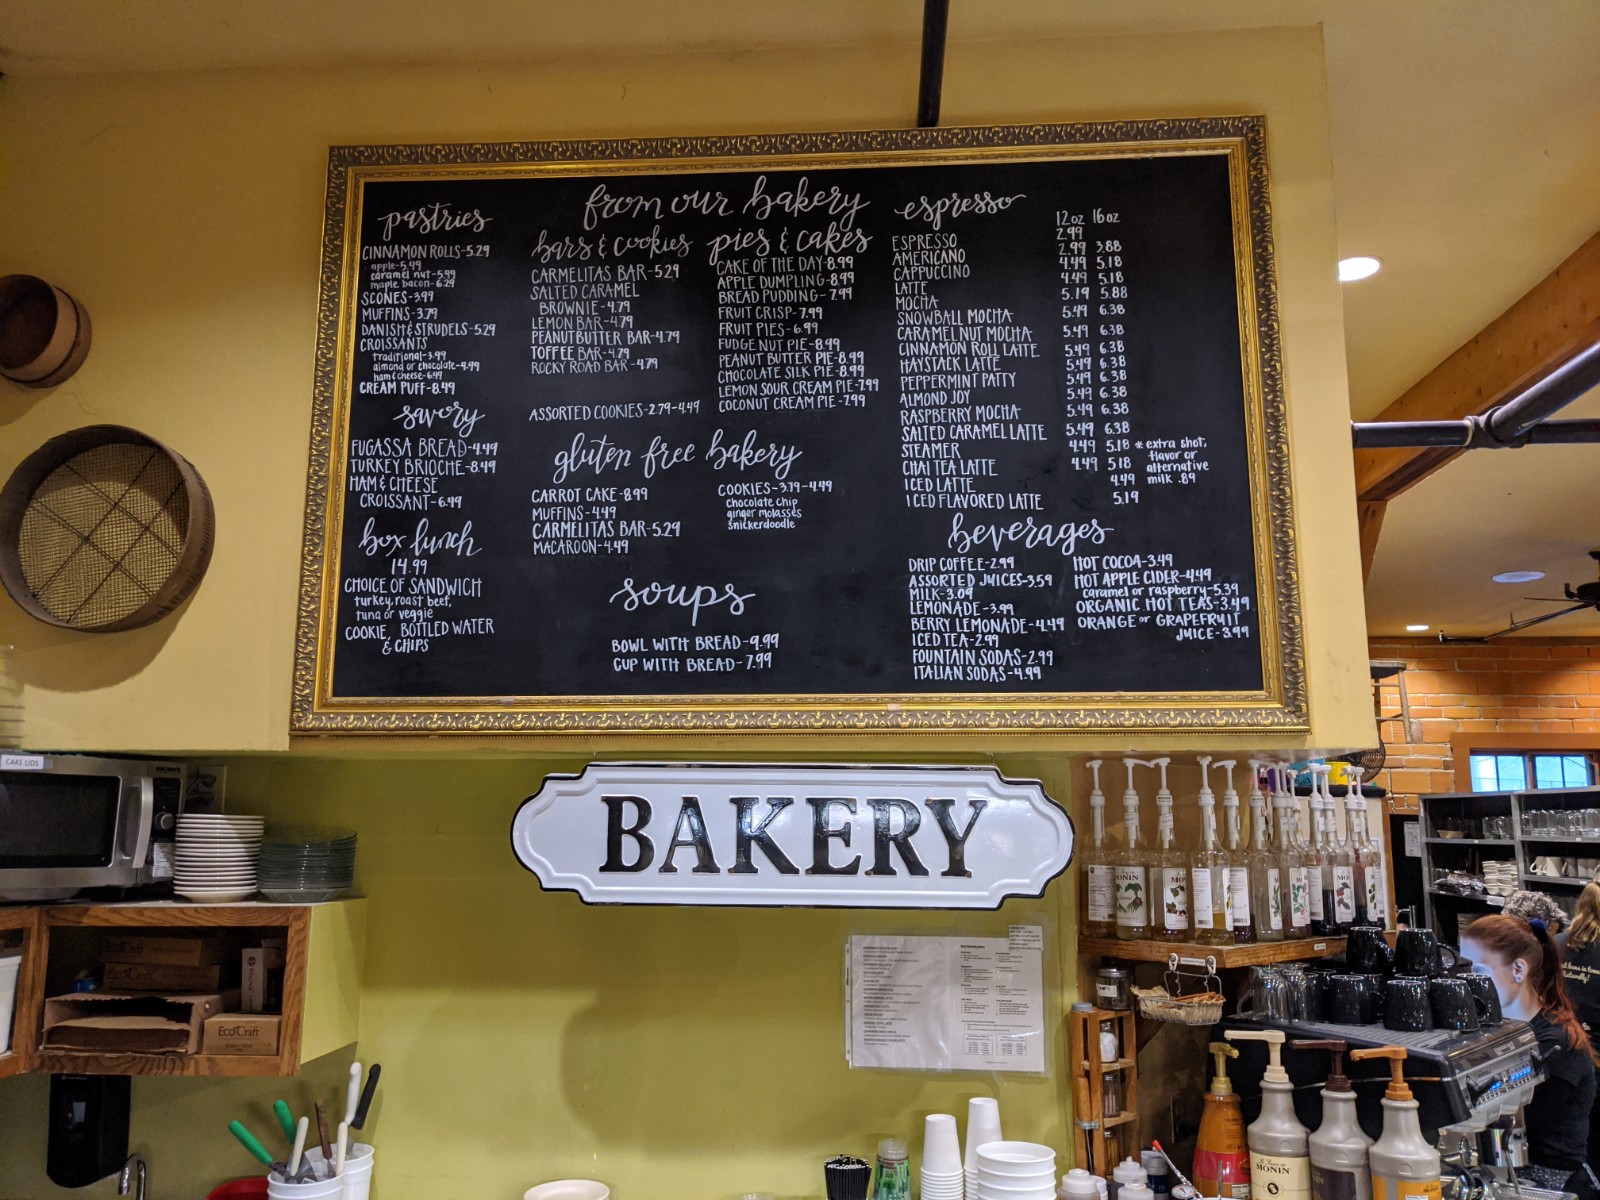 from our bakery
pastries
CINNAMON ROLLS-5.29
apple-5.49
caramel nut-5.99
maple bacon-6.29
SCONES-3.99
MUFFINS-3.79
DANISH & STRUDELS-5.29
CROISSANTS
traditional-3.99
almond or chocolate-4.99
ham & cheese-6.49
CREAM PUFF-8.49
savory
FUGASSA BREAD-4.49
TURKEY BRIOCHE-8.49
HAM & CHEESE
CROISSANT-6.49
box lunch
14.99
CHOICE OF SANDWICH
turkey, roast beef,
tuna or veggie
COOKIE, BOTTLED WATER
& CHIPS
bars & cookies
CARMELITAS BAR-5.29
SALTED CARAMEL
BROWNIE-4.79
LEMON BAR-4.79
PEANUTBUTTER BAR-4.79
TOFFEE BAR-4.79
ROCKY ROAD BAR-4.79
ASSORTED COOKIES-2.79-4.49
pies & cakes
CAKE OF THE DAY-8.99
APPLE DUMPLING-8.99
BREAD PUDDING-7.99
FRUIT CRISP-7.99
FRUIT PIES-6.99
FUDGE NUT PIE-8.99
PEANUT BUTTER PIE-8.99
CHOCOLATE SILK PIE-8.99
LEMON SOUR CREAM PIE-7.99
COCONUT CREAM PIE-7.99
gluten free bakery
CARROT CAKE-8.99
MUFFINS-4.49
CARMELITAS BAR-5.29
MACAROON-4.49
COOKIES-3.79-4.49
chocolate chip
ginger molasses
snickerdoodle
soups
BOWL WITH BREAD-9.99
CUP WITH BREAD-7.99
espresso
12oz 16oz
ESPRESSO 2.99
AMERICANO 2.99 3.88
CAPPUCCINO 4.49 5.18
LATTE 4.49 5.18
MOCHA 5.19 5.88
SNOWBALL MOCHA 5.49 6.38
CARAMEL NUT MOCHA 5.49 6.38
CINNAMON ROLL LATTE 5.49 6.38
HAYSTACK LATTE 5.49 6.38
PEPPERMINT PATTY 5.49 6.38
ALMOND JOY 5.49 6.38
RASPBERRY MOCHA 5.49 6.38
SALTED CARAMEL LATTE 5.49 6.38
STEAMER 4.49 5.18
CHAI TEA LATTE 4.49 5.18
ICED LATTE 4.49
ICED FLAVORED LATTE 5.19
* extra shot,
flavor or
alternative
milk .89
beverages
DRIP COFFEE-2.99
ASSORTED JUICES-3.59
MILK-3.09
LEMONADE-3.99
BERRY LEMONADE-4.49
ICED TEA-2.99
FOUNTAIN SODAS-2.99
ITALIAN SODAS-4.99
HOT COCOA-3.49
HOT APPLE CIDER-4.49
caramel or raspberry-5.39
ORGANIC HOT TEAS-3.49
ORANGE or GRAPEFRUIT
JUICE-3.99
BAKERY
CAKE LIDS
EcoCraft
EcoCraft
EcoCraft
MONIN
MONIN